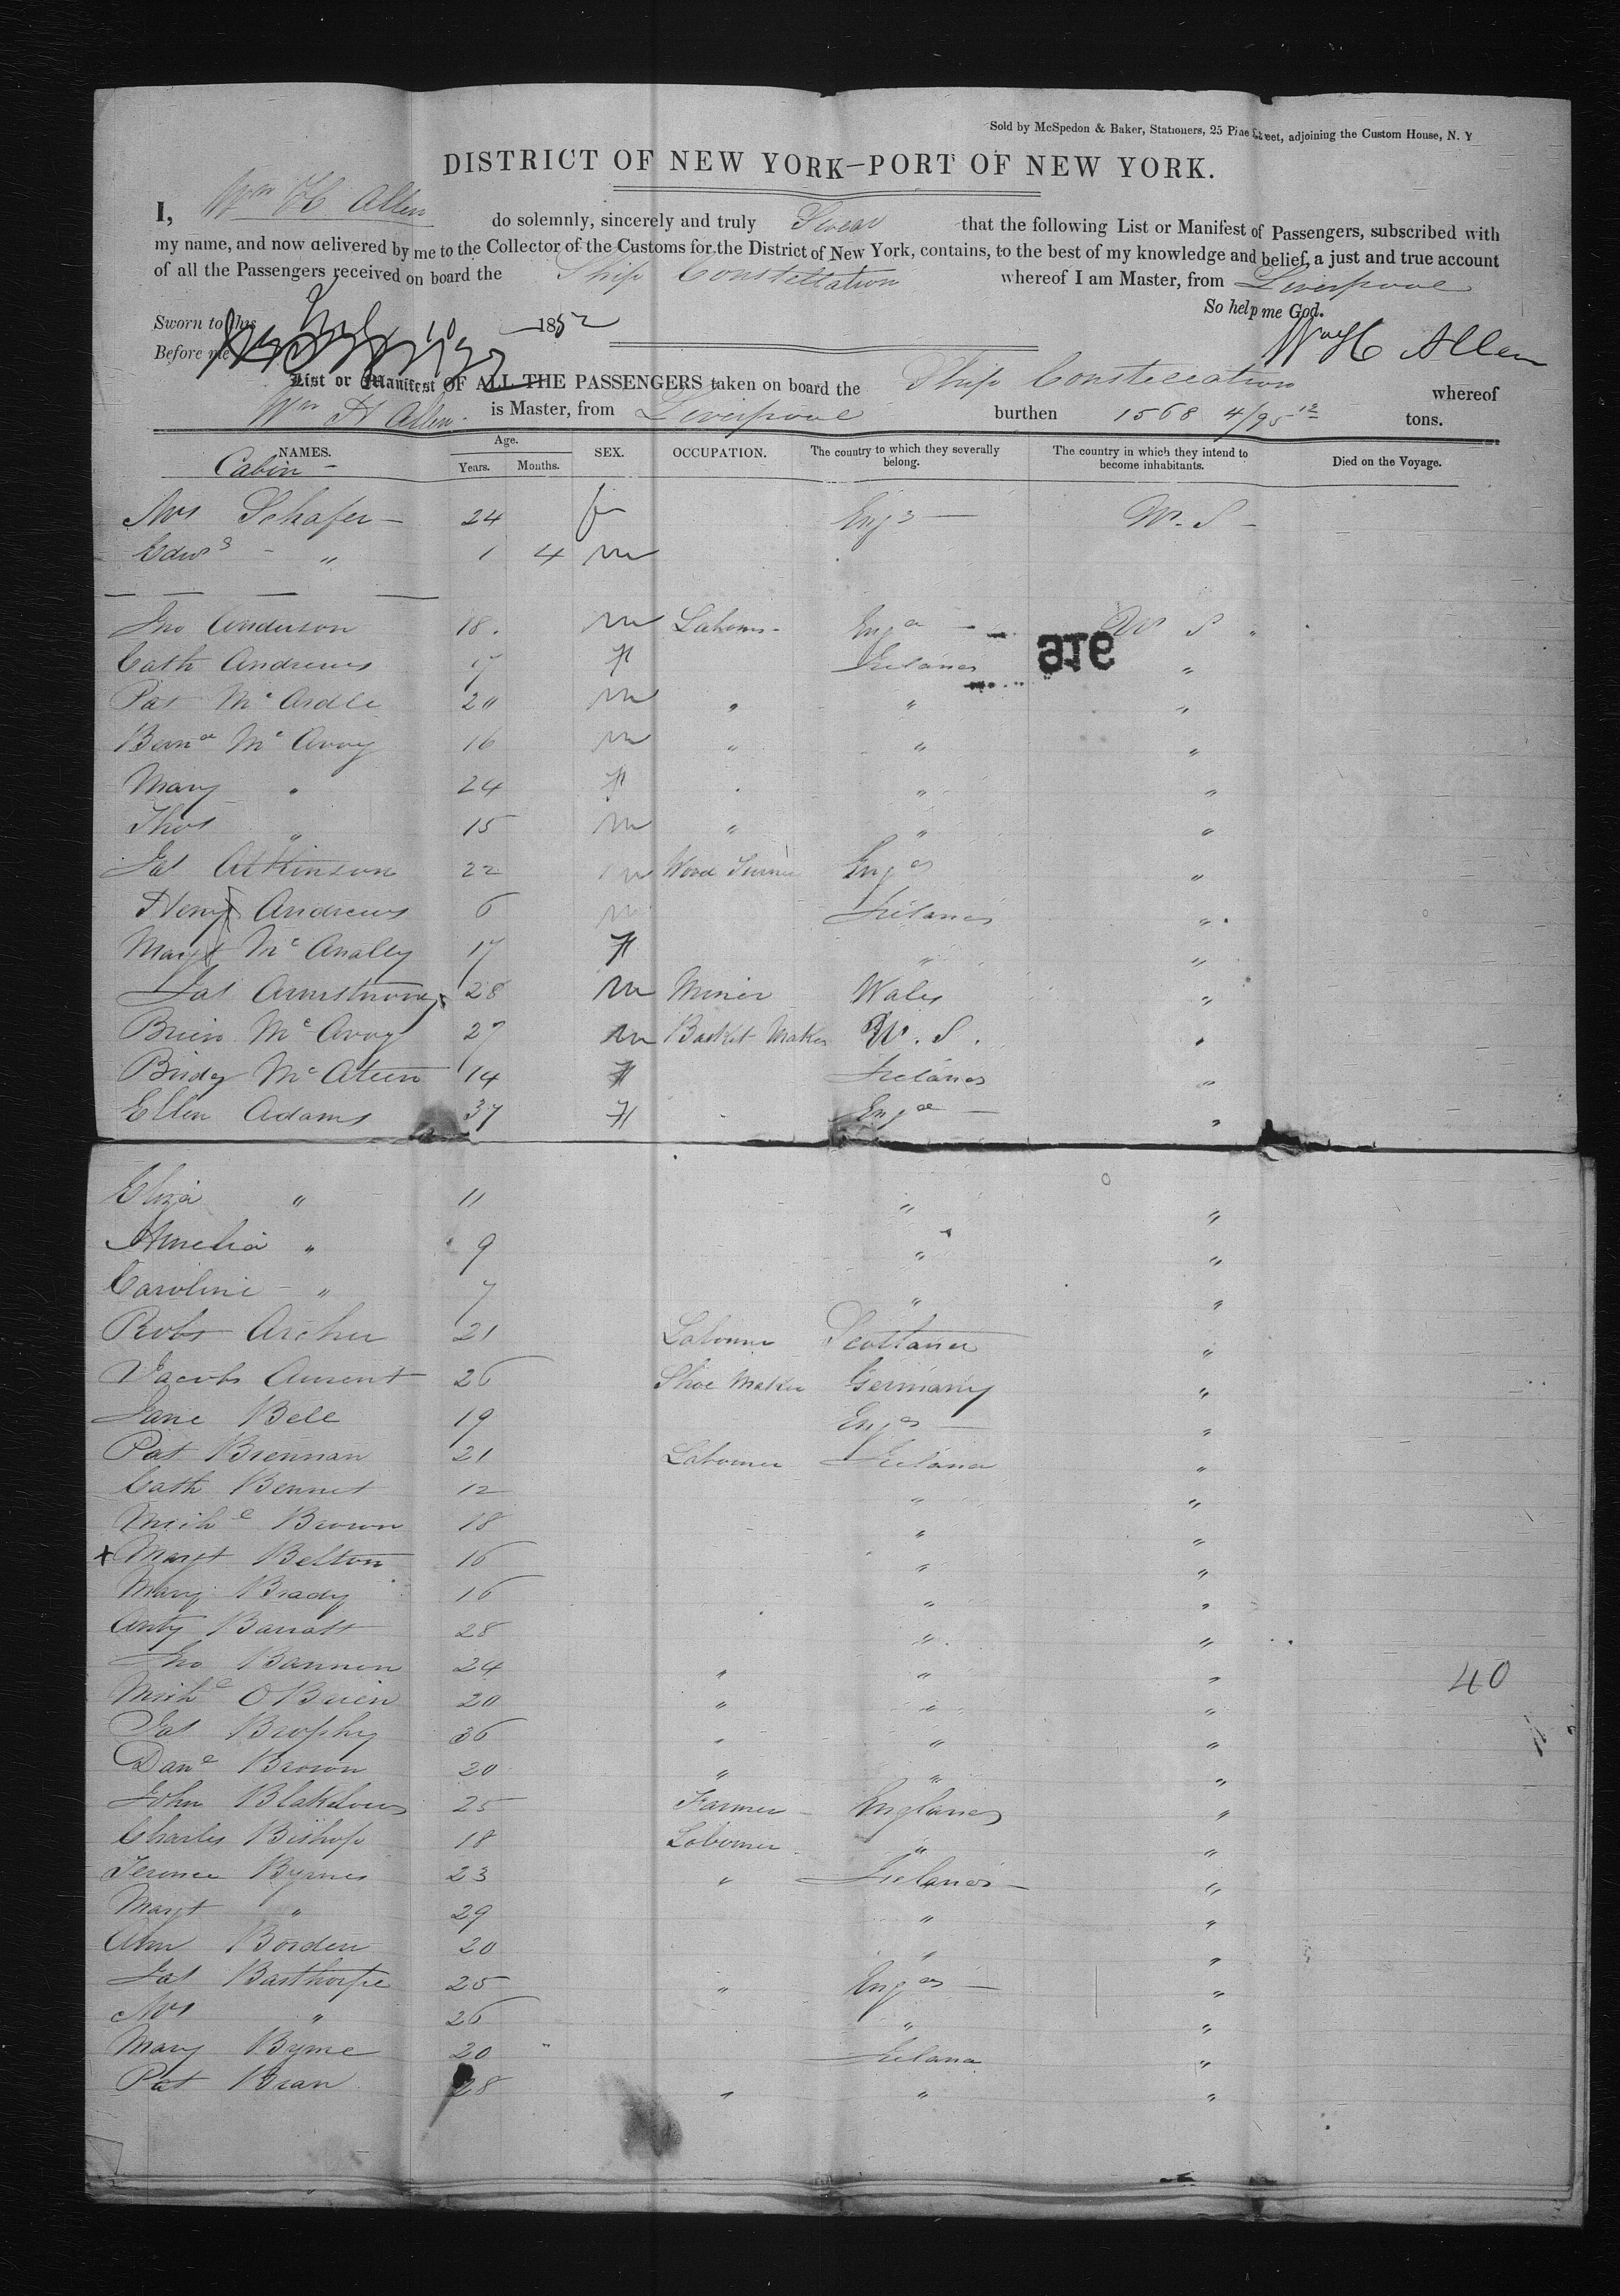 Sold by McSpedon & Baker, Stationers, 25 Pine Street, adjoining the Custom House, N. Y
DISTRICT OF NEW YORK—PORT OF NEW YORK.
I, Wm H Allen do solemnly, sincerely and truly Swear that the following List or Manifest of Passengers, subscribed with
my name, and now delivered by me to the Collector of the Customs for the District of New York, contains, to the best of my knowledge and belief, a just and true account
of all the Passengers received on board the Ship Constellation whereof I am Master, from Liverpool
So help me God.
Sworn to this 1852
Before me
Wm H Allen
List or Manifest OF ALL THE PASSENGERS taken on board the Ship Constellation whereof
Wm H Allen is Master, from Liverpool burthen 1568 4/95 tons.
NAMES. Age. Years. Months. SEX. OCCUPATION. The country to which they severally belong. The country in which they intend to become inhabitants. Died on the Voyage.
Cabin
Mrs Schafer — 24 f Engd — U. S —
Edwd " 1 4 m
Jno Anderson 18. m Labour- Engd — U S "
919
Cath Andrews 17 F Ireland "
Pat Mc Ardle 20 m " " "
Bernd Mc Avoy 16 m " " "
Mary " 24 F " " "
Thos " 15 m " " "
Jas Atkinson 22 m Wood Turner Engd "
Henry Andrews 6 m Ireland "
Margt Mc Anally 17 F " "
Jas Armstrong 28 m Miner Wales "
Brien Mc Avoy 27 m Basket Maker U. S. "
Bridgt Mc Ateen 14 F Ireland "
Ellen Adams 37 F Engd — "
Eliza " 11 " "
Amelia " 9 " "
Caroline — " 7 " "
Robt Archer 21 Labourer Scotland "
Jacob Aurent 26 Shoe Maker Germany "
Jane Bell 19 Engd — "
Pat Brennan 21 Labourer Ireland "
Cath Bennet 12 " "
Michl Brown 18 " "
x Margt Belton 16 " "
Mary Brady 16 " "
Anty Barratt 28 " "
Jno Bannon 24 " " "
40
Michl O Brien 20 " " "
Jas Brophy 36 " " "
Danl Brown 20 " " "
John Blakelows 25 Farmer England "
Charles Bishop 18 Labourer " "
Terence Byrnes 23 " Ireland — "
Margt " 29 " "
Ann Borden 20 " "
Jas Basthorpe 25 " Engd — "
Mrs " 26 " "
Mary Byrne 20 Ireland "
Pat Bran 28 " " "